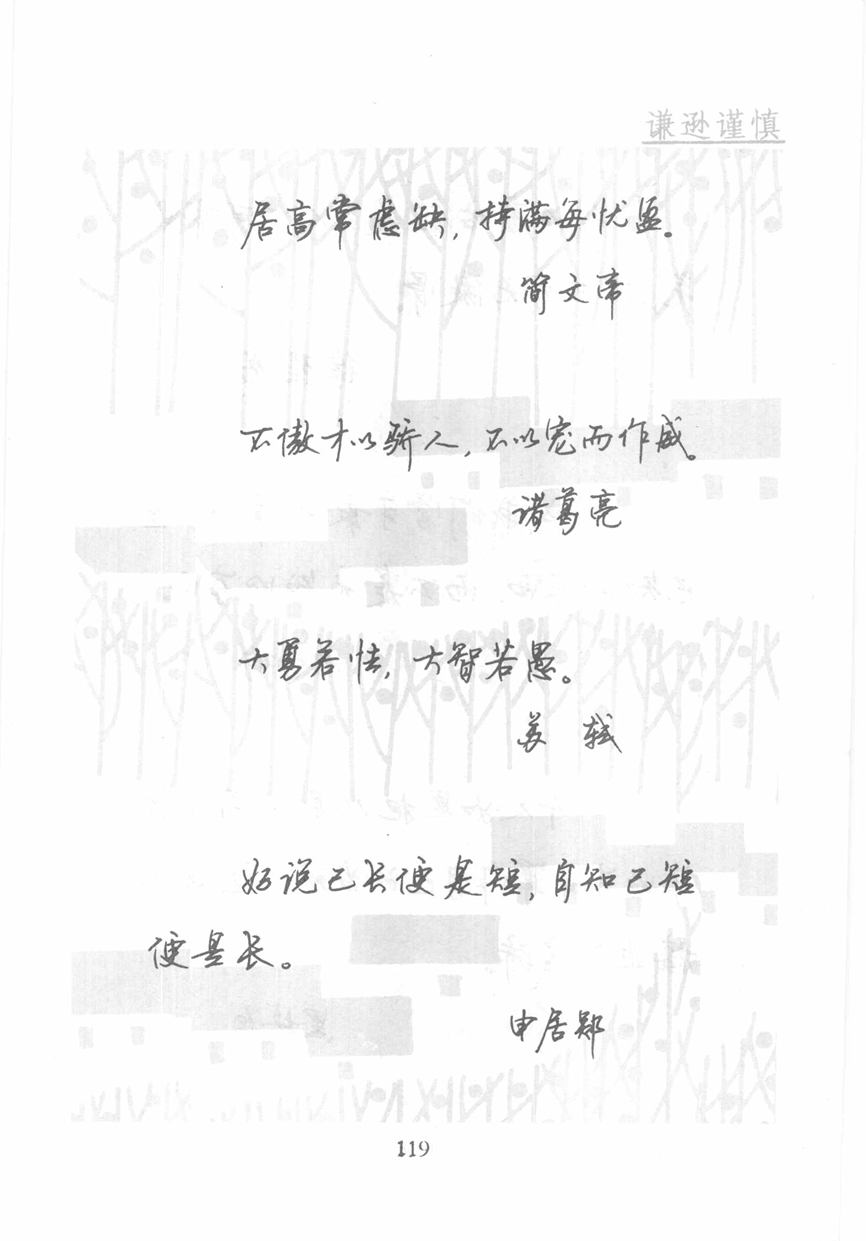 谦逊谨慎
居高常虑缺，持满每忧盈。
简文帝
不傲才以骄人，不以宠而作威。
诸葛亮
大勇若怯，大智若愚。
苏 轼
好说己长便是短，自知己短
便是长。
申居郧
119